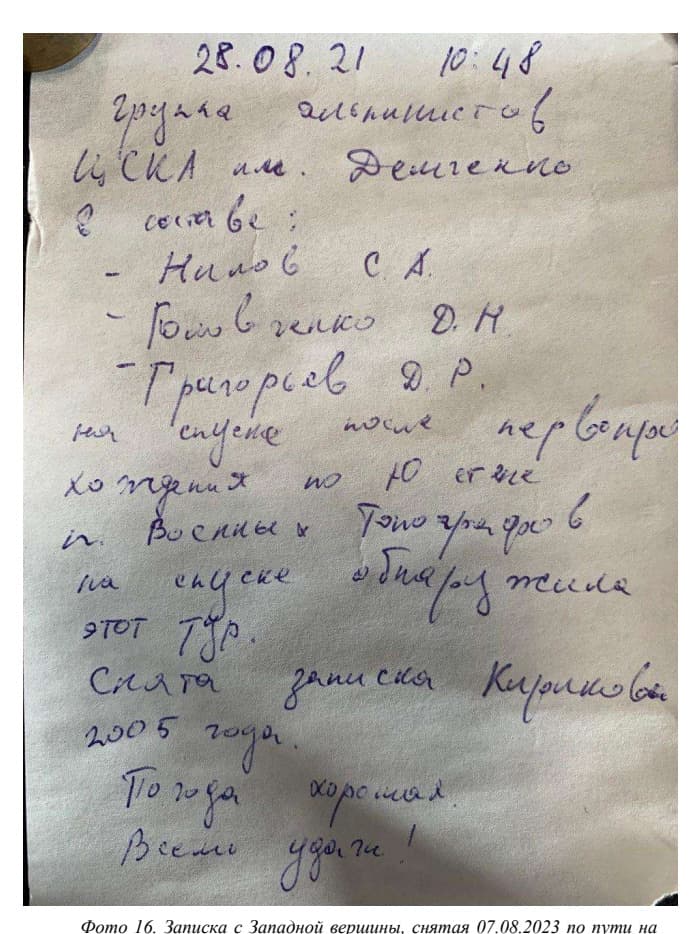 28.08.21 10:48
Группа альпинистов
ЦСКА им. Демченко
в составе:
- Нилов С. А.
- Головченко Д. Н.
- Григорьев Д. Р.
на спуске после первопро
хождения по Ю стене
п. Военных Топографов
на спуске обнаружила
этот тур.
Снята записка Кирикова
2005 года.
Погода хорошая.
Всем удачи!
Фото 16. Записка с Западной вершины, снятая 07.08.2023 по пути на